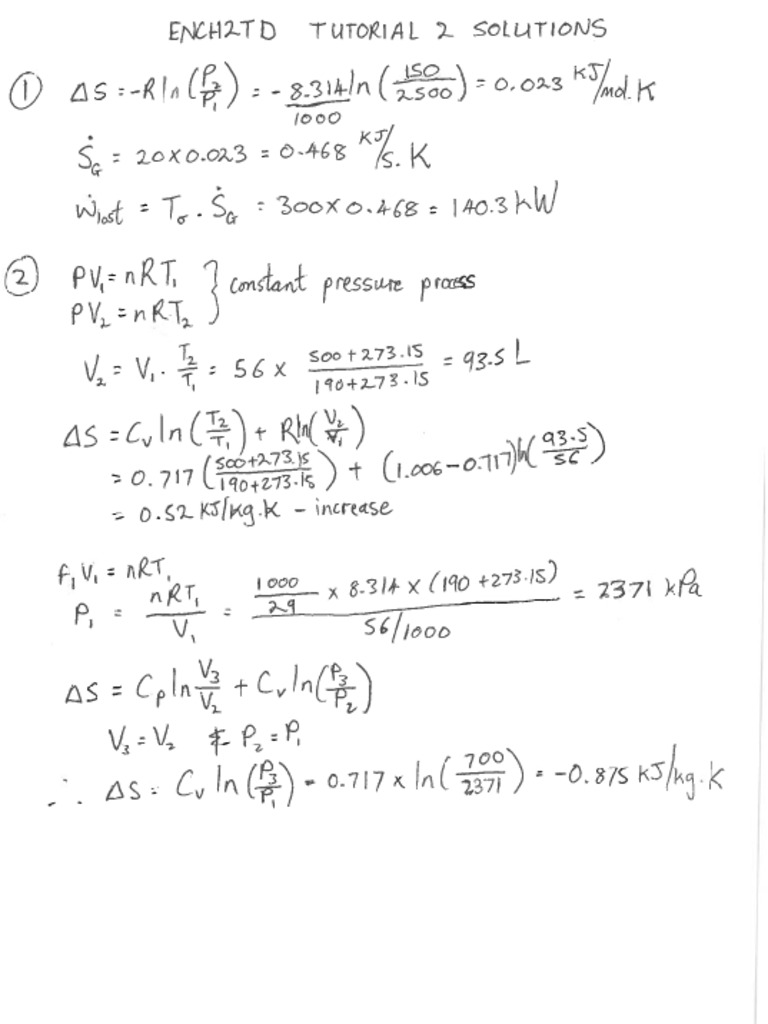 ENCH2TD TUTORIAL 2 SOLUTIONS
① ΔS = -R ln(P₂/P₁) = - 8.314/1000 ln(150/2500) = 0.023 KJ/mol.K
Ṡ_G = 20 × 0.023 = 0.468 KJ/s.K
Ẇ_lost = T_σ . Ṡ_G = 300 × 0.468 = 140.3 kW
② PV₁ = nRT₁ } constant pressure process
PV₂ = nRT₂
V₂ = V₁ . T₂/T₁ = 56 × (500+273.15)/(190+273.15) = 93.5 L
ΔS = Cᵥ ln(T₂/T₁) + R ln(V₂/V₁)
= 0.717 (500+273.15/190+273.15) + (1.006-0.717) ln(93.5/56)
= 0.52 KJ/kg.K - increase
P₁V₁ = nRT₁
P₁ = nRT₁/V₁ = (1000/29 × 8.314 × (190 +273.15))/(56/1000) = 2371 kPa
ΔS = Cₚ ln V₃/V₂ + Cᵥ ln(P₃/P₂)
V₃ = V₂ & P₂ = P₁
∴ ΔS = Cᵥ ln(P₃/P₁) = 0.717 × ln(700/2371) = -0.875 KJ/kg.K